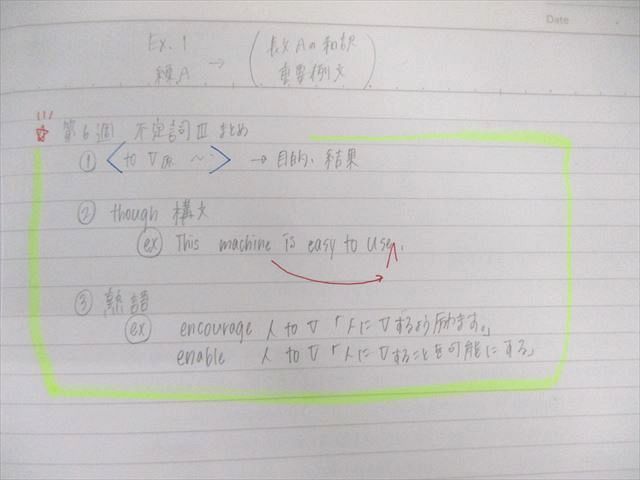 Date
Ex. 1
練A → (長文Aの和訳
重要例文)
第6週 不定詞Ⅲ まとめ
① <to V原 ~> → 目的、結果
② though 構文
ex This machine is easy to use∧.
③ 熟語
ex encourage 人 to V 「人にVするよう励ます。」
enable 人 to V 「人にVすることを可能にする」